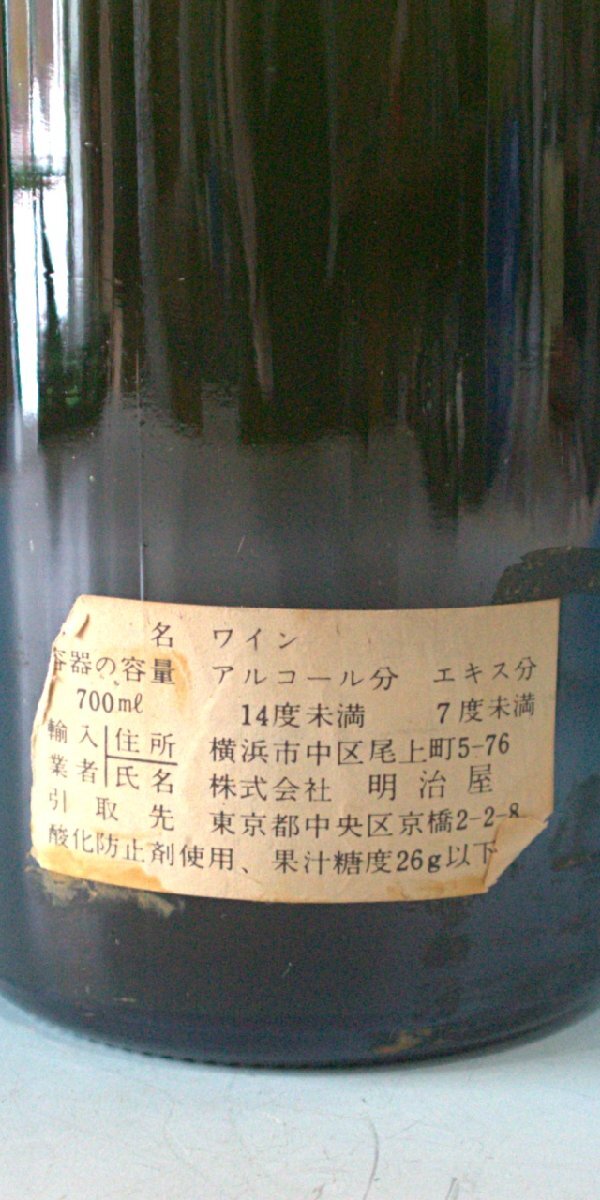 名 ワイン
容器の容量 アルコール分 エキス分
700ml 14度未満 7度未満
輸入 住所 横浜市中区尾上町5-76
業者 氏名 株式会社 明治屋
引取先 東京都中央区京橋2-2-8
酸化防止剤使用、果汁糖度26g以下